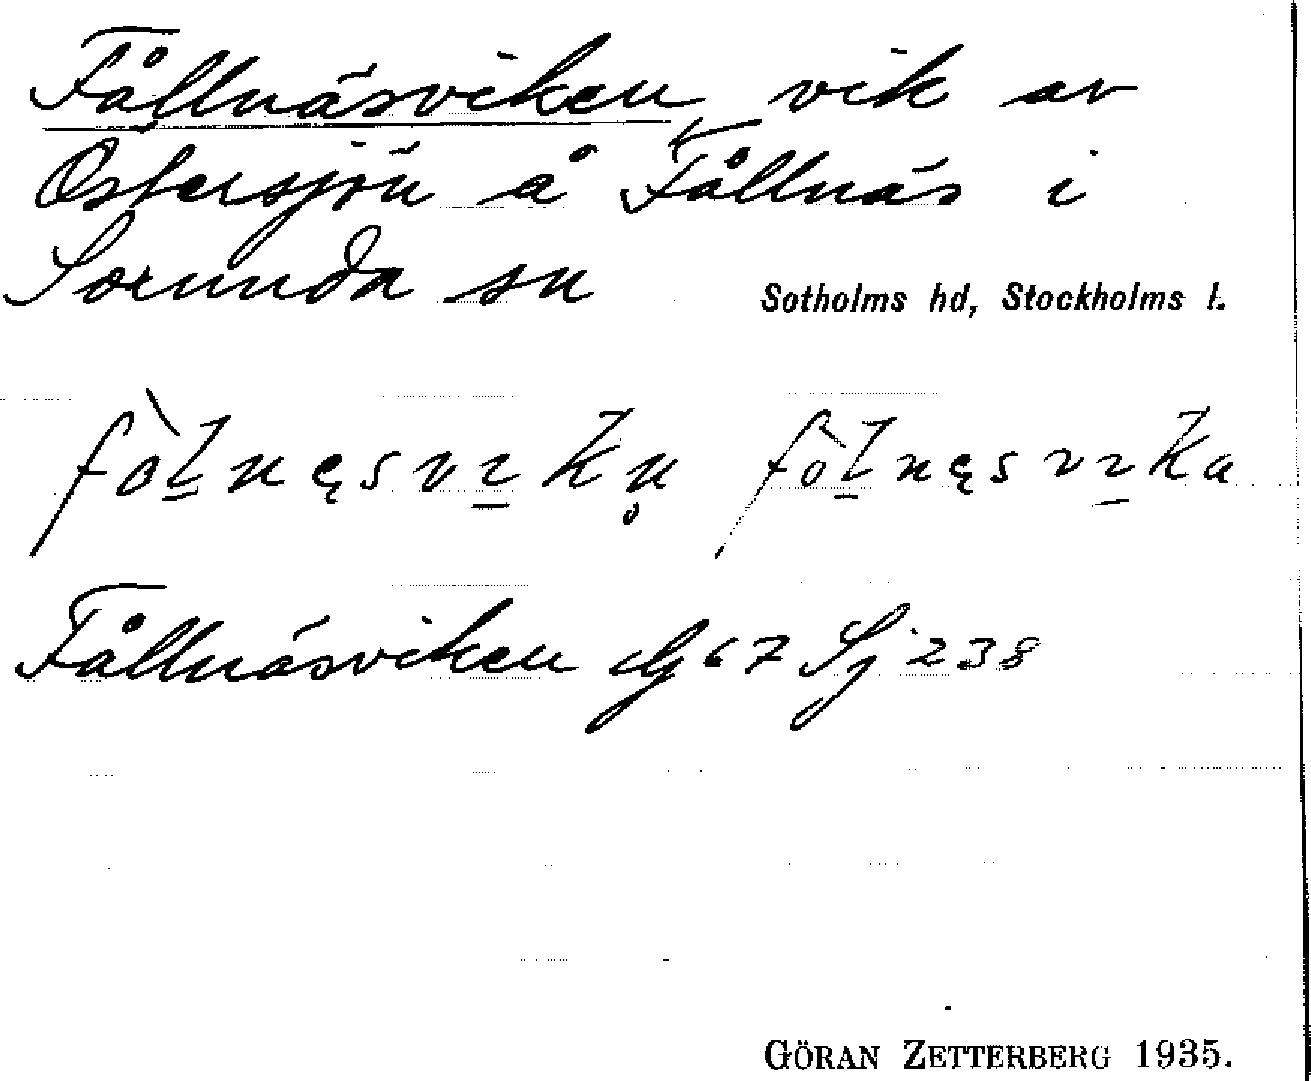 Fållnäsviken, vik av
Östersjön å Fållnäs i
Sorunda sn
Sotholms hd, Stockholms l.
Fållnäsviken 67 Sj 238
GÖRAN ZETTERBERG 1935.